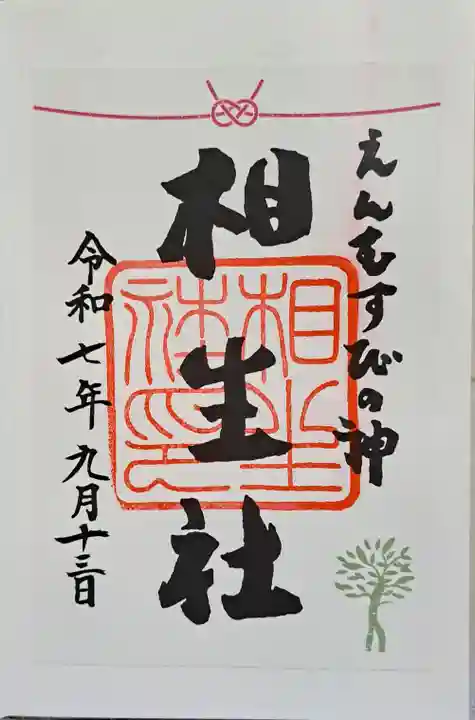 えんむすびの神
相生社
相生社印
令和七年九月十三日